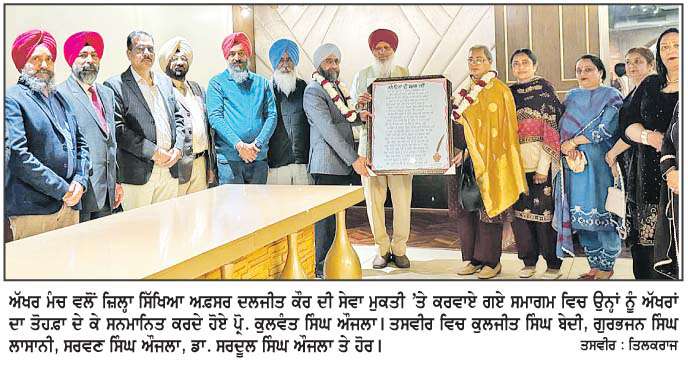 ਅੱਖਰ ਮੰਚ ਵਲੋਂ ਜ਼ਿਲ੍ਹਾ ਸਿੱਖਿਆ ਅਫ਼ਸਰ ਦਲਜੀਤ ਕੌਰ ਦੀ ਸੇਵਾ ਮੁਕਤੀ 'ਤੇ ਕਰਵਾਏ ਗਏ ਸਮਾਗਮ ਵਿਚ ਉਨ੍ਹਾਂ ਨੂੰ ਅੱਖਰਾਂ
ਦਾ ਤੋਹਫ਼ਾ ਦੇ ਕੇ ਸਨਮਾਨਿਤ ਕਰਦੇ ਹੋਏ ਪ੍ਰੋ. ਕੁਲਵੰਤ ਸਿੰਘ ਔਜਲਾ। ਤਸਵੀਰ ਵਿਚ ਕੁਲਜੀਤ ਸਿੰਘ ਬੇਦੀ, ਗੁਰਭਜਨ ਸਿੰਘ
ਲਾਸਾਨੀ, ਸਰਵਣ ਸਿੰਘ ਔਜਲਾ, ਡਾ. ਸਰਦੂਲ ਸਿੰਘ ਔਜਲਾ ਤੇ ਹੋਰ।
ਤਸਵੀਰ : ਤਿਲਕਰਾਜ